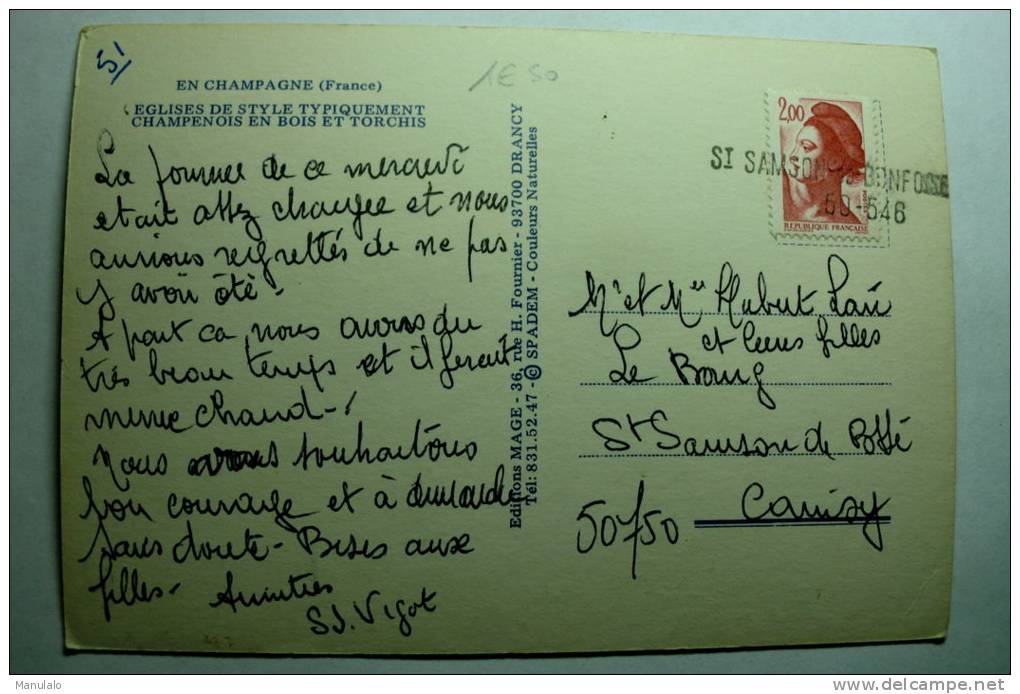 51
1E50
EN CHAMPAGNE (France)
EGLISES DE STYLE TYPIQUEMENT
CHAMPENOIS EN BOIS ET TORCHIS
La journee de ce mercredi
etait assez chargee et nous
aurions regrettés de ne pas
y avoir été.
A part ca nous avons du
très beau temps et il ferait
meme chaud - !
Nous vous souhaitons
bon courage et à dimanche
sans doute - Bises aux
filles - Amities
S J. Vigot
Editions MAGE - 36, rue H. Fournier - 93700 DRANCY
Tél: 831.52.47 - © SPADEM - Couleurs Naturelles
2,00
REPUBLIQUE FRANÇAISE
ST SAMSON DE BONFOSSE
50-546
Mr et Me Hubert
et leurs filles
Le Bourg
St Samson de Bossé
50750 Canisy
Manulalo
delcampe.net